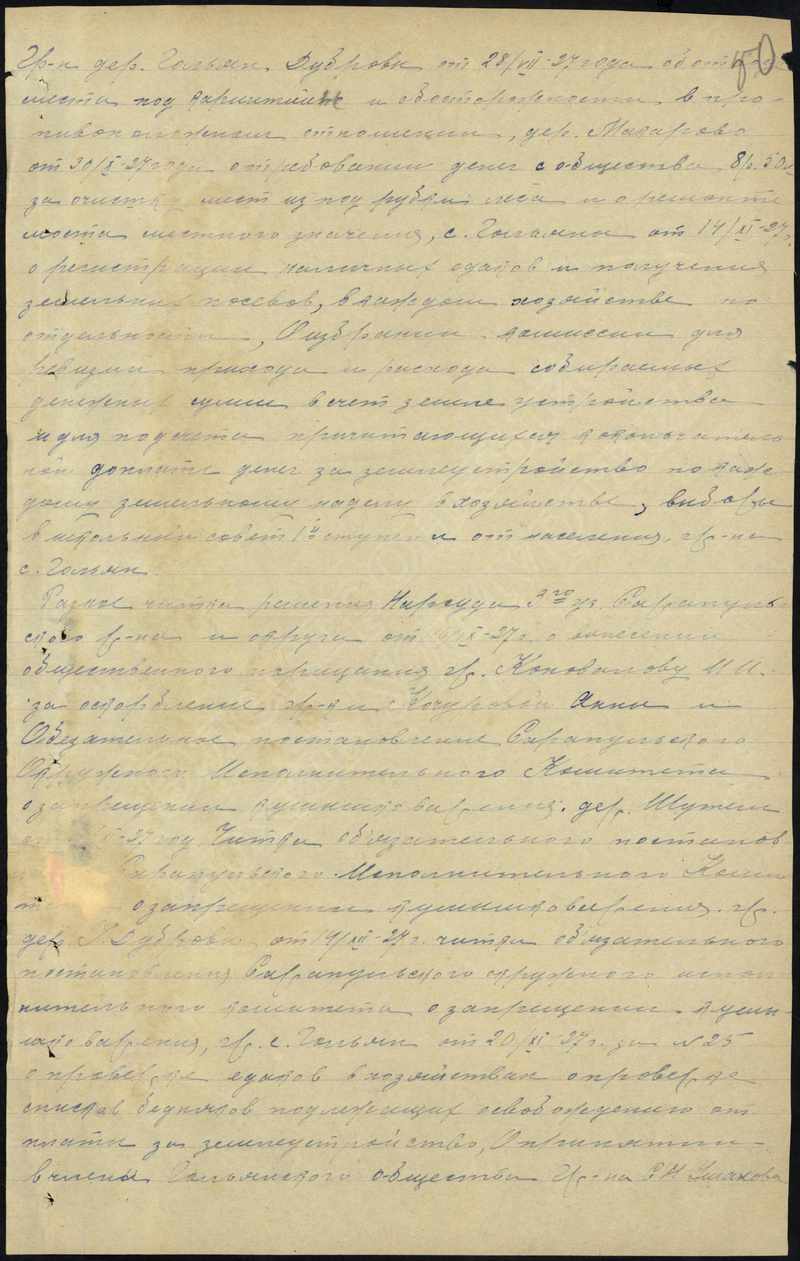 50
Гр-н дер. Гольян. Дубровк от 28/VII-27 года об от
места под и обосторожности в про-
тивоп отношении, дер. Макарово
от 30/X-27 года о требовании денег с общества 8 р. 50 к
за очистку мест из под рубки леса и о ремонте
моста местного значения, с. Гольяны от 14/XI-27 г.
о регистрации наличных едаков и получения
земельных посевов, в каждом хозяйстве по
отдельности, О избрании комиссии для
ревизии прихода и расхода собираемых
денежных сумм в счет земле устройства
и для подсчета причитающихся
ной доплате денег за землеустройство по каж-
дому земельному наделу в хозяйстве, выборы
в школьный совет 1й ступени от населения гр-не
с. Гольян.
читка решения Нарсуда 3го уч. Сарапуль-
ского р-на и округа от X-27 г. о вынесении
общественного порицания гр. Коновалову И И.
за оскорбление гр-ки Кочуровой Анны и
Обезательное постановление Сарапульского
Окружного Исполнительного Комитета
о запрещении кумышковарения. дер.
27 год Читка обязательного постанов
Сарапульского Исполнительного Коми
о запрещении кумышковарения. гр.
дер. Г. Дубровк от 19/XII-27 г. читка обязательного
постановления Сарапульского окружного испол-
нительного комитета о запрещении кумыш-
коварения, гр. с. Гольян от 20/XI-27 г. за № 25
о проверке едаков в хозяйствах о проверке
списков бедняков подлежащих освобождению от
платы за землеустройство, О принятии
в члены Гольянского общества Гр-на С Н Ушакова